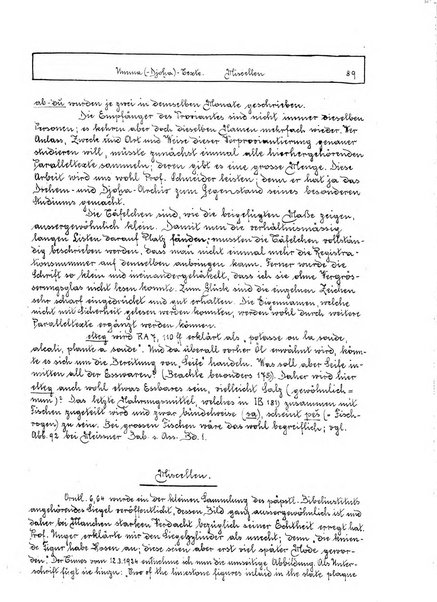 Umma (-Djoḫa)-Texte. Miscellen 89
ab-dū wurden je zwei in demselben Monate geschrieben.
Die Empfänger des Proviantes sind nicht immer dieselben
Personen; es kehren aber doch dieselben Namen mehrfach wieder. Wer
Anlass, Zweck und Art und Weise dieser Verproviantierung genauer
studieren will, müsste zunächst einmal alle hierhergehörenden
Paralleltexte sammeln; deren gibt es eine grosse Menge. Diese
Arbeit wird uns wohl Prof. Schneider leisten; denn er hat ja das
Drehem- und Djoḫa-Archiv zum Gegenstand seines besonderen
Studiums gemacht.
Die Täfelchen sind, wie die beigefügten Maße zeigen,
aussergewöhnlich klein. Damit nun die verhältnismässig
langen Listen darauf Platz fänden, mussten die Täfelchen vollstän-
dig beschrieben werden, dass man nicht einmal mehr die Registra-
tionsnummer auf denselben anbringen kann. Ferner wurde die
Schrift so klein und ineinandergehäkelt, dass ich sie ohne Vergrös-
serungsglas nicht lesen konnte. Zum Glück sind die einzelnen Zeichen
sehr scharf eingedrückt und gut erhalten. Die Eigennamen, welche
nicht mit Sicherheit gelesen werden konnten, werden wohl durch weitere
Paralleltexte ergänzt werden können.
elteg wird RA 7, 110 9 erklärt als „potasse ou la soude,
alcali, plante à soude". Weil da überall vorher Öl erwähnt wird, könn-
te es sich um die Bereitung von „Seife" handeln. Was soll aber Seife in-
mitten all der Esswaren? (Beachte besonders 175). Daher wird hier
elteg auch wohl etwas Essbares sein, vielleicht Salz (gewöhnlich =
mun)? Das letzte Nahrungsmittel, welches in IB 181 zusammen mit
Fischen zugeteilt wird und zwar bündelweise (sa), scheint peš (= Fisch-
rogen) zu sein. Bei grossen Fischen wäre das wohl begreiflich; vgl.
Abb. 92 bei Meissner Bab. u. Ass. Bd. 1.
Miscellen.
Orntl. 6, 64 wurde ein der kleinen Sammlung des päpstl. Bibelinstituts
angehörendes Siegel veröffentlicht, dessen Bild ganz aussergewöhnlich ist und
daher bei Manchen starken Verdacht bezüglich seiner Echtheit erregt hat.
Prof. Unger erklärte mir den Siegelzylinder als unecht, denn „die knien-
de Figur habe Hosen an; diese seien aber erst viel später Mode gewor-
den". Der Times vom 12.3.1924 entnehme ich nun die umseitige Abbildung. Als Unter-
schrift fügt sie hinzu: „Two of the limestone figures inlaid in the slate plaque